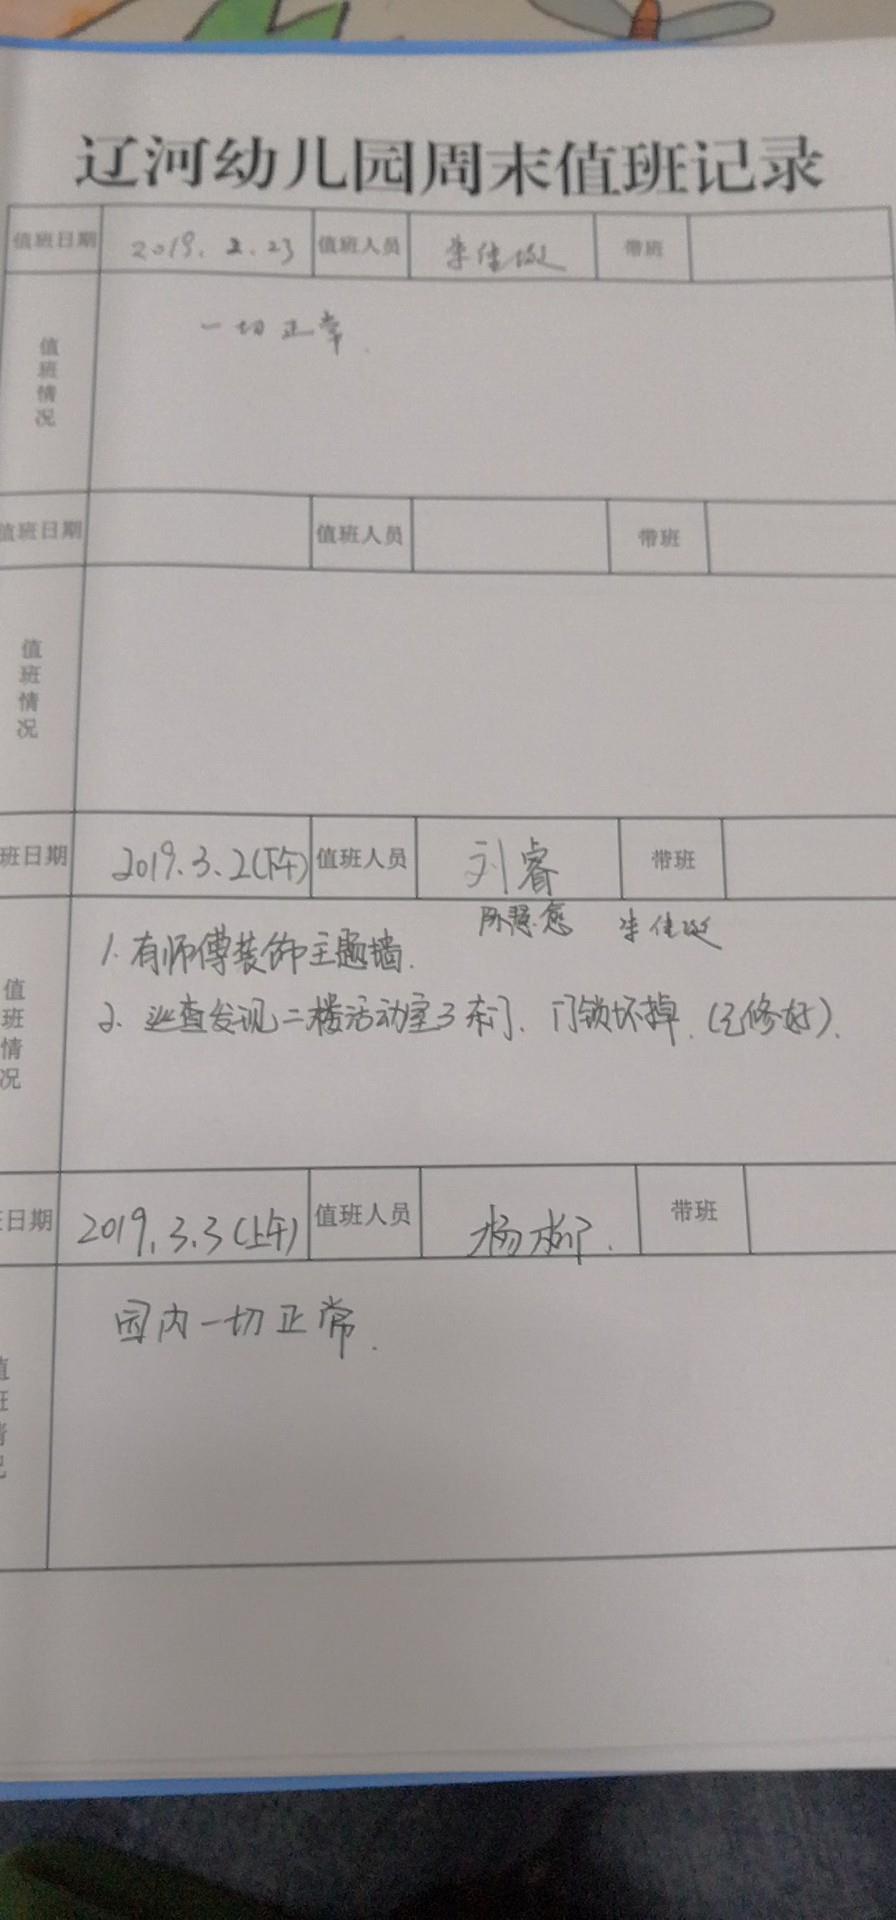 辽河幼儿园周末值班记录
值班日期 2019.2.23 值班人员 带班
值班情况
一切正常.
值班日期 值班人员 带班
值班情况
班日期 2019.3.2(下午) 值班人员 刘睿 带班
值班情况
1. 有师傅装饰主题墙.
2. 巡查发现二楼活动室3东门、门锁坏掉.(已修好).
日期 2019.3.3(上午) 值班人员 杨柳. 带班
园内一切正常.